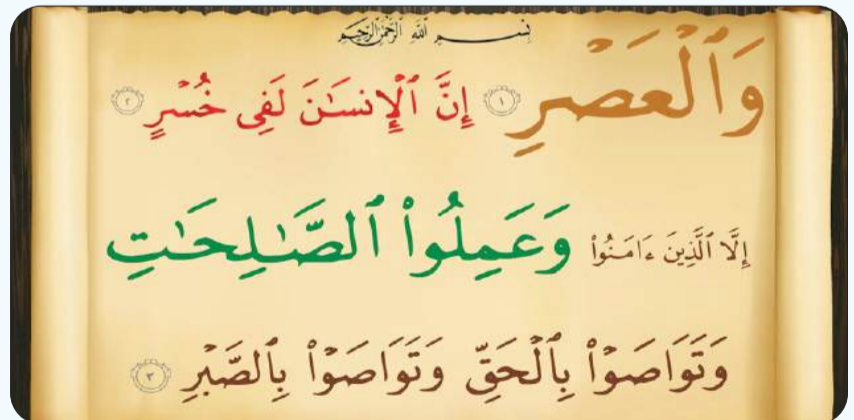 بِسْمِ اللَّهِ الرَّحْمَٰنِ الرَّحِيمِ
وَٱلْعَصْرِ ١ إِنَّ ٱلْإِنسَـٰنَ لَفِى خُسْرٍ ٢
إِلَّا ٱلَّذِينَ ءَامَنُوا۟ وَعَمِلُوا۟ ٱلصَّـٰلِحَـٰتِ
وَتَوَاصَوْا۟ بِٱلْحَقِّ وَتَوَاصَوْا۟ بِٱلصَّبْرِ ٣